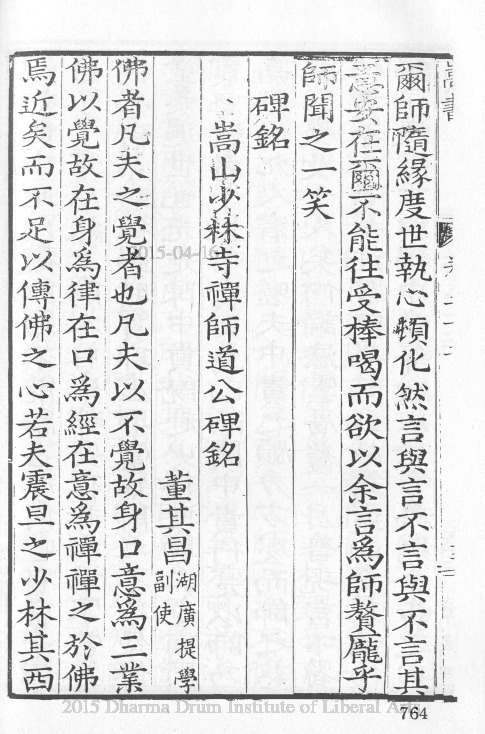 嵩書
爾師隨緣度世執心頓化然言與言不言與不言其
意安在爾不能往受棒喝而欲以余言爲師贅龐乎
師聞之一笑
碑銘
嵩山少林寺禪師道公碑銘
董其昌湖廣提學副使
佛者凡夫之覺者也凡夫以不覺故身口意爲三業
佛以覺故在身爲律在口爲經在意爲禪禪之於佛
焉近矣而不足以傳佛之心若夫震旦之少林其西
2015-04-16
2015 Dharma Drum Institute of Liberal Arts
764